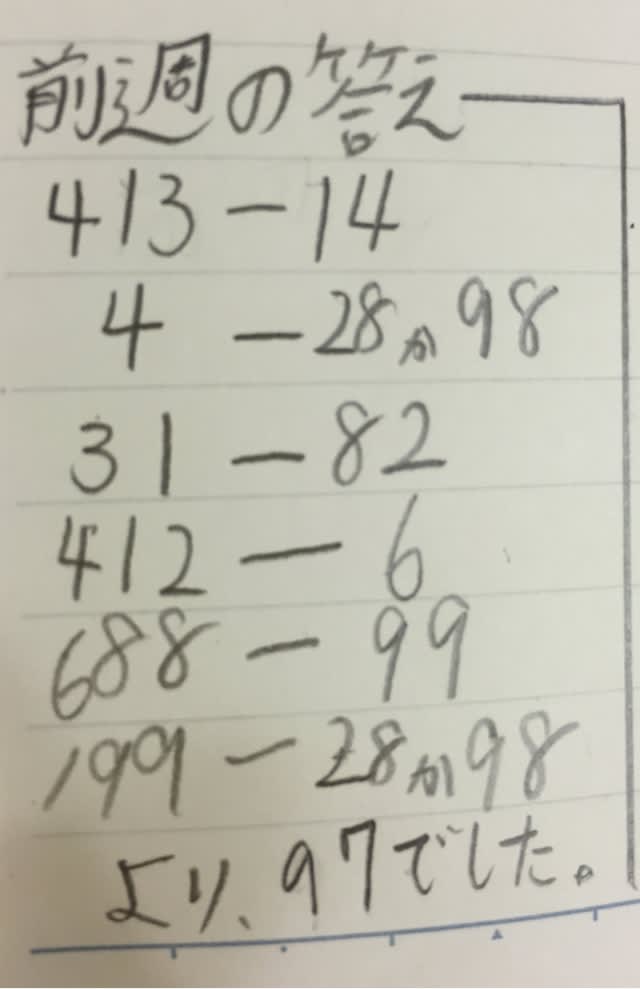 前週の答え
413ー14
4ー28か98
31ー82
412ー6
688ー99
199ー28か98
より、97でした。